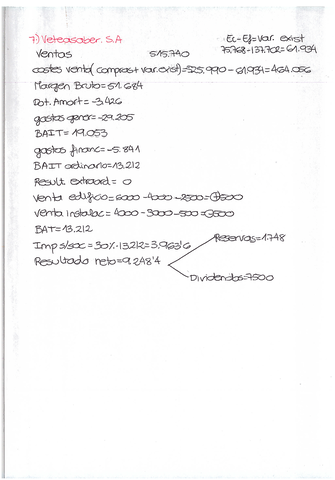 7) Veteasaber. S.A
Ec-Ef=Var. exist
75.768-137.702=61.934
Ventas 515.740
costes venta(compras+var.exist)=525.990-61934=464.056
Margen Bruto=51.684
Dot. Amort=-3.426
gastos gener=-29.205
BAIT=19.053
gastos financ=-5.841
BAIT ordinario=13.212
Result extraord= 0
Venta edificio=6000-4000-2500=-500
Venta instalac=4000-3000-500=+500
BAT=13.212
Imp s/soc=30%·13.212=3.963'6
Resultado neto=9.248'4
Reservas=1748
Dividendos=7500